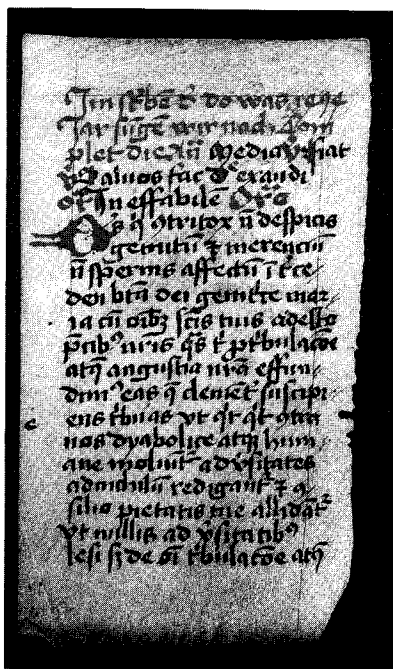 Jar sūgē wir nach Com
plet die Añ Media
Saluos fac exaudi
In effabilē Orō
Ds q̄ ꝯtritoꝝ n̄ despicis
gemitū ⁊ merenciū
n̄ spernis affectū ī t͛ce
den btā dei genit͛ce mar
ia cū oībꝫ sc̄is tuis adesto
p̄cibꝰ nr̄is q̄s p t͛bulacōe
atqꝫ angustia nr̄a effun
dimꝰ eas q̄ clement͛ suscipi
ens t͛buas vt ꝯtra
nos dyabolice atqꝫ hum
ane moliūt͛ ad v͛sitates
ad nichilū redigant͛ ⁊ ꝯ
silio pietatis tue allidāt͛
vt nullis ad v͛sitatibꝰ
lesi sꝫ de oī t͛bulacōe atqꝫ